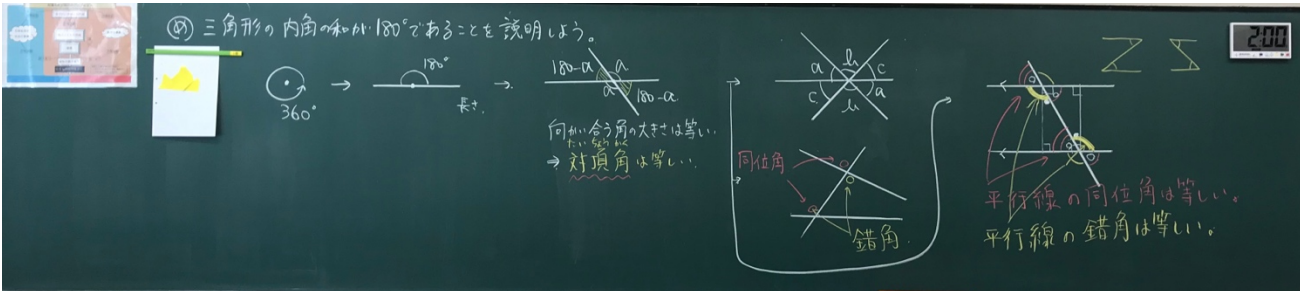 め 三角形の内角の和が180°であることを説明しよう。
360°
180°
長さ
180-a a
a 180-a
向かい合う角の大きさは等しい。
たいちょうかく
⇒ 対頂角は等しい。
a b c
c b a
同位角
錯角
平行線の同位角は等しい。
平行線の錯角は等しい。
2:00